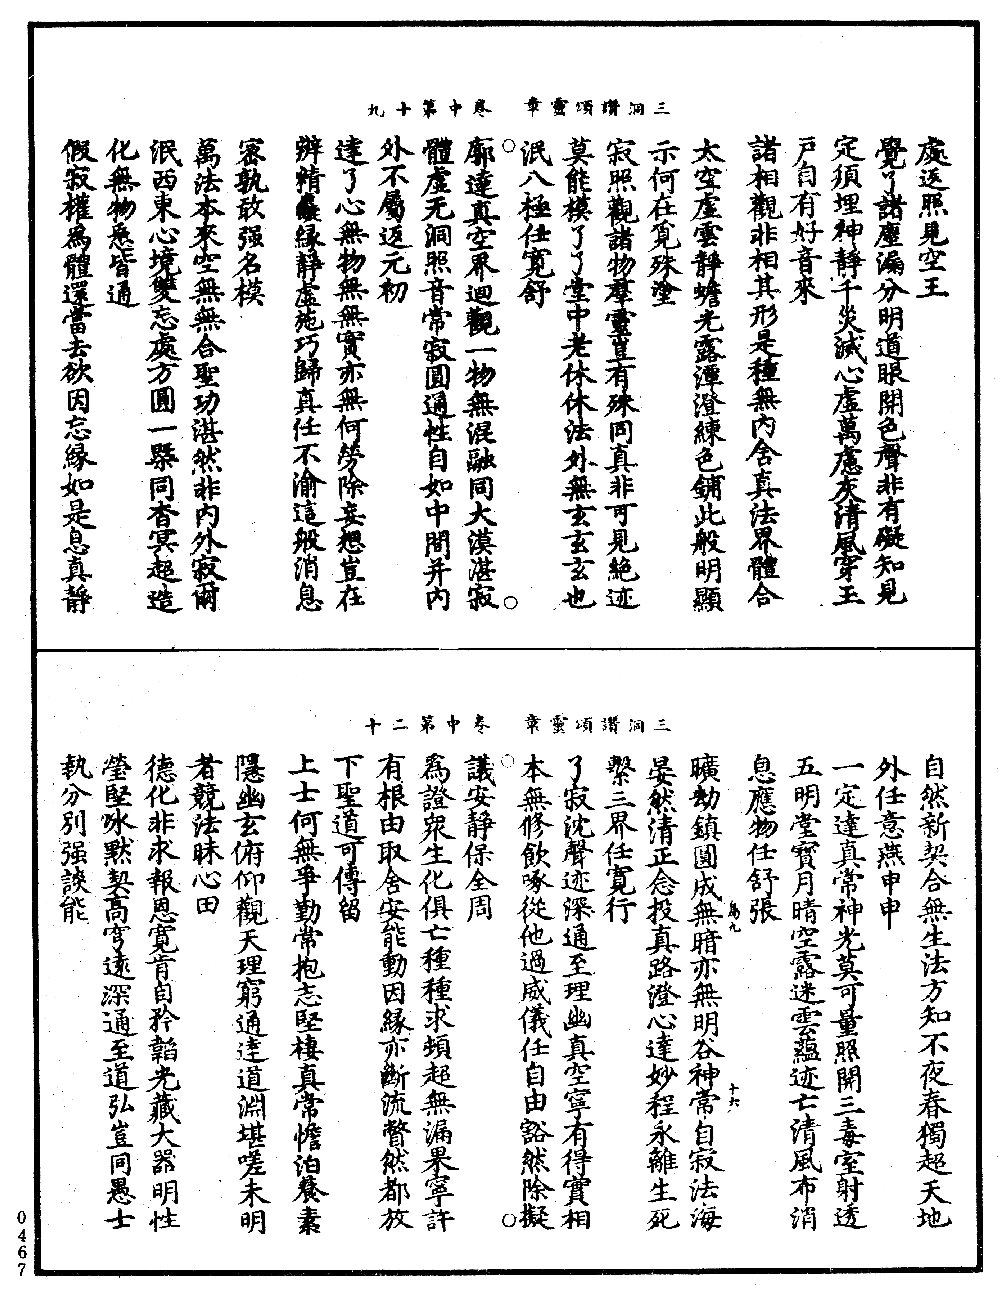 三洞讃頌靈章　卷中第十九
處返照見空王
覺了諸塵漏分明道眼開色聲非有礙知見
定須埋神靜千災滅心虛萬慮灰清風穿玉
戶自有好音來
諸相觀非相其形是種無內含真法界體合
太空虛雲靜蟾光露潭澄練色鋪此般明顯
示何在覓殊塗
寂照觀諸物羣靈豈有殊同真非可見絶迹
莫能模了了堂中老休休法外無玄玄玄也
泯八極任寬舒
廓達真空界迴觀一物無混融同大漠湛寂
體虛无洞照音常寂圓通性自如中間并內
外不屬返元初
達了心無物無無實亦無何勞除妄想豈在
辨精麤緣靜虛施巧歸真任不渝這般消息
密孰敢强名模
萬法本來空無無合聖功湛然非內外寂爾
泯西東心境雙忘處方圓一槩同杳冥超造
化無物悉皆通
假寂權為體還當去欲因忘緣如是息真靜
三洞讃頌靈章　卷中第二十
自然新契合無生法方知不夜春獨超天地
外任意燕申申
一定達真常神光莫可量照開三毒室射透
五明堂寶月晴空露迷雲蘊迹亡清風布消
息應物任舒張
為九
十六
曠劫鎮圓成無暗亦無明谷神常自寂法海
晏然清正念投真路澄心達妙程永離生死
繫三界任寬行
了寂沈聲迹深通至理幽真空寧有得實相
本無修飲啄從他過威儀任自由豁然除擬
議安靜保全周
為證衆生化俱亡種種求頓超無漏果寧許
有根由取舍安能動因緣亦斷流瞥然都放
下聖道可傳留
上士何無爭勤常抱志堅棲真常憺泊養素
隱幽玄俯仰觀天理窮通達道淵堪嗟未明
者競法昧心田
德化非求報恩寬肯自矜韜光藏大器明性
瑩堅冰默契高穹遠深通至道弘豈同愚士
執分別强談能
0467